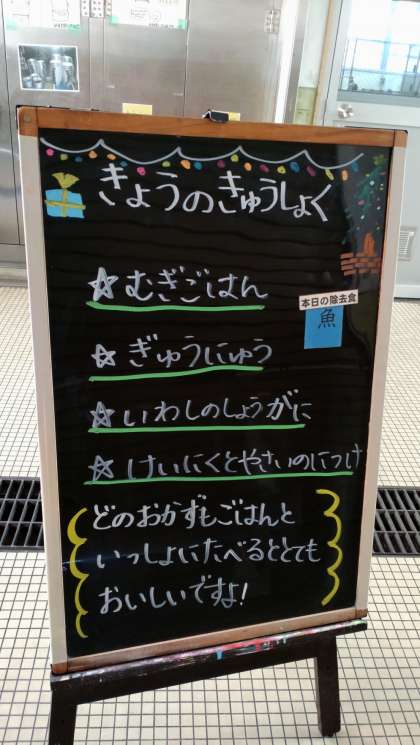 きょうのきゅうしょく
☆むぎごはん
本日の除去食
魚
☆ぎゅうにゅう
☆いわしのしょうがに
☆けいにくとやさいのにつけ
どのおかずもごはんと
いっしょにたべるととても
おいしいですよ!